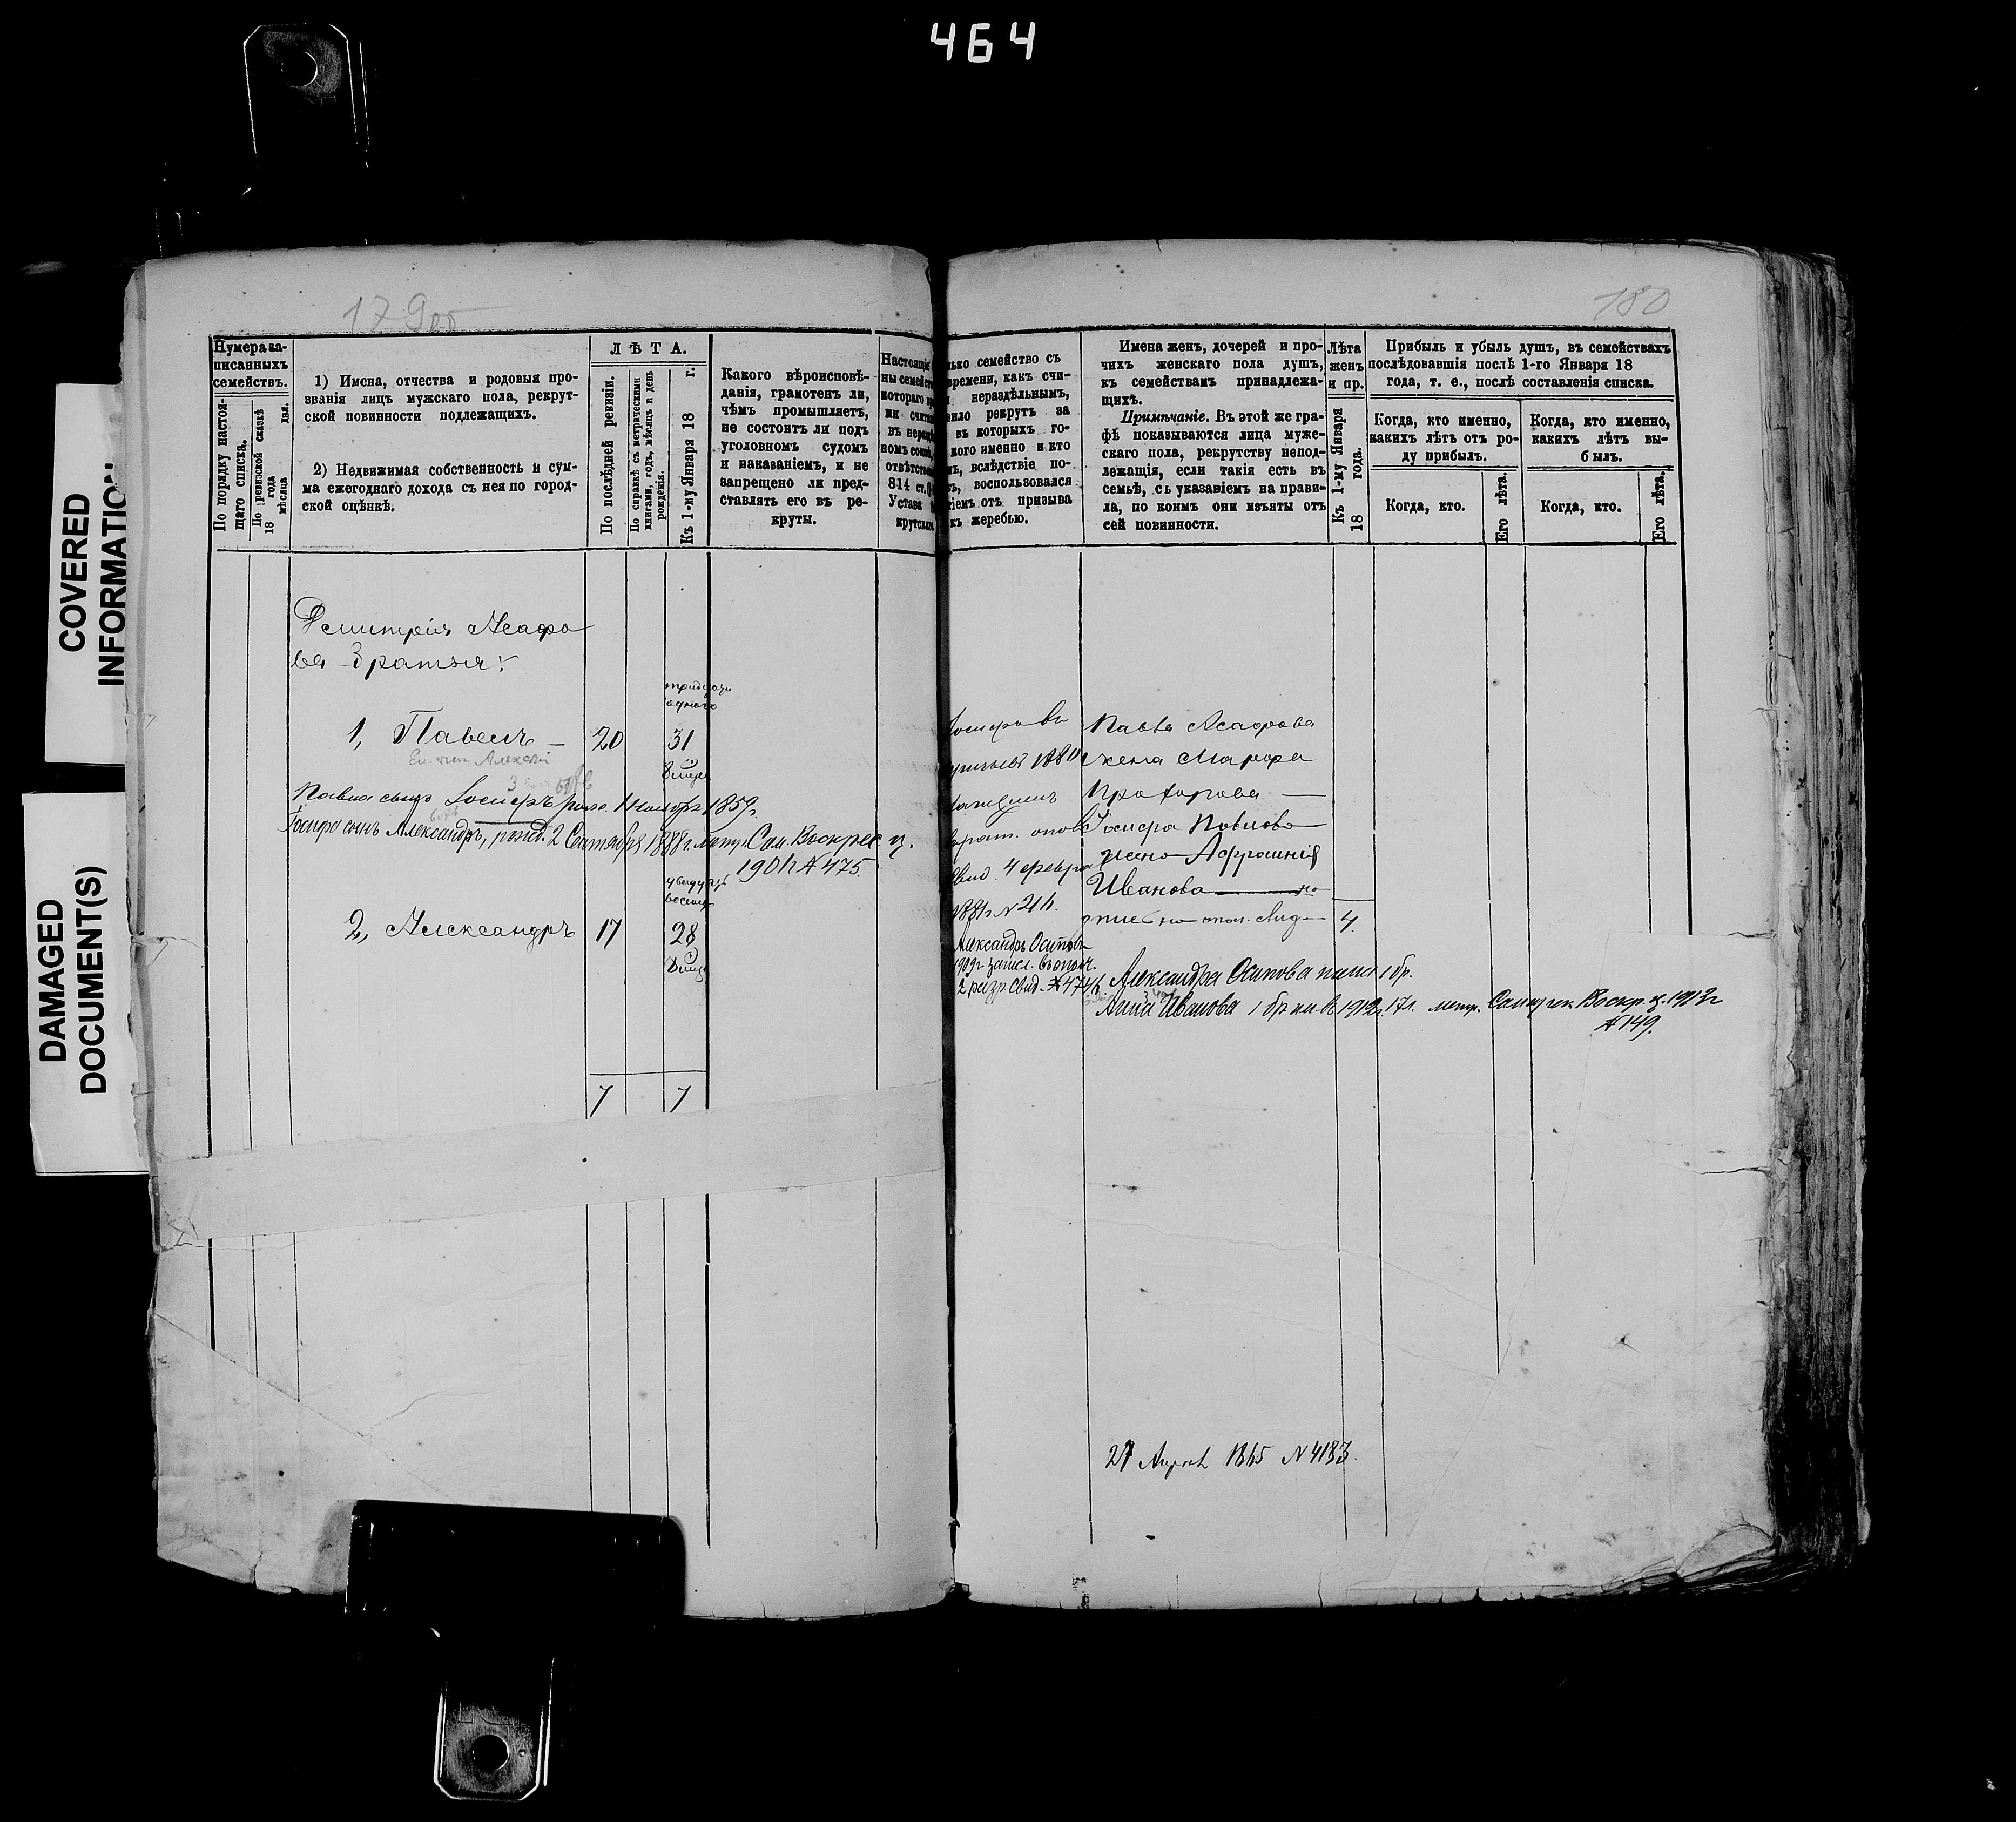 464
COVERED
INFORMATION
DAMAGED
DOCUMENT(S)
179об
180
Нумера за-
писанныхъ
семействъ.
По порядку настоя-
щаго списка.
По ревизской сказкѣ
18 года
мѣсяца дня.
1) Имена, отчества и родовыя про-
званія лицъ мужскаго пола, рекрут-
ской повинности подлежащихъ.
2) Недвижимая собственность и сум-
ма ежегоднаго дохода съ нея по город-
ской оцѣнкѣ.
ЛѢТА.
По послѣдней ревизіи.
По справкѣ съ метрическими
книгами, годъ, мѣсяцъ и день
рожденія.
Къ 1-му Января 18 г.
Какого вѣроисповѣ-
данія, грамотенъ ли,
чѣмъ промышляетъ,
не состоитъ ли подъ
уголовномъ судомъ
и наказаніемъ, и не
запрещено ли пред-
ставлять его въ ре-
круты.
Настоящіе
ны семейст
котораго
ми счит
въ нераз
номъ союз
отвѣтстве
814 ст.
Устава
крутскаго
лько семейство съ
времени, какъ счи-
нераздѣльнымъ,
вило рекрутъ за
въ которыхъ го-
кого именно и кто
ъ, вслѣдствіе по-
ъ, воспользовался
іемъ отъ призыва
къ жеребью.
Имена женъ, дочерей и про-
чихъ женскаго пола душъ,
къ семействамъ принадлежа-
щихъ.
Примѣчаніе. Въ этой же гра-
фѣ показываются лица муже-
скаго пола, рекрутству непод-
лежащія, если такія есть въ
семьѣ, съ указаніемъ на прави-
ла, по коимъ они изъяты отъ
сей повинности.
Лѣта
женъ
и пр.
Къ 1-му Января
18 года.
Прибыль и убыль душъ, въ семействахъ
послѣдовавшія послѣ 1-го Января 18
года, т. е., послѣ составленія списка.
Когда, кто именно,
какихъ лѣтъ отъ ро-
ду прибылъ.
Когда, кто.
Его лѣта.
Когда, кто именно,
какихъ лѣтъ вы-
былъ.
Когда, кто.
Его лѣта.
Дмитрія Асафо
ва братья:
тридцати
одного
1, Павелъ — 20 31
Павла сынъ Іосифъ 1859.
Іосифа сынъ Александръ, рожд. 2 Сентября 1888 г. метр. Сам. Воскрес. ц.
190 № 475.
2, Александръ 17 28
7 7
Павла Асафова
жена Марфа
Прохорова —
Іосифа Павлова
жена Аффошнія
Иванова
4.
4 февра
1881 г. № 21
Александръ Осиповъ
1909 г. зачисл. въ опол.
2 разр. свид. № 474
Александра Осипова жена 1 бр.
Анна Иванова 1 бр. 17 л. метр. Воскр. ц. 1913 г
№ 149.
27 Апрѣл 1865 № 4183.